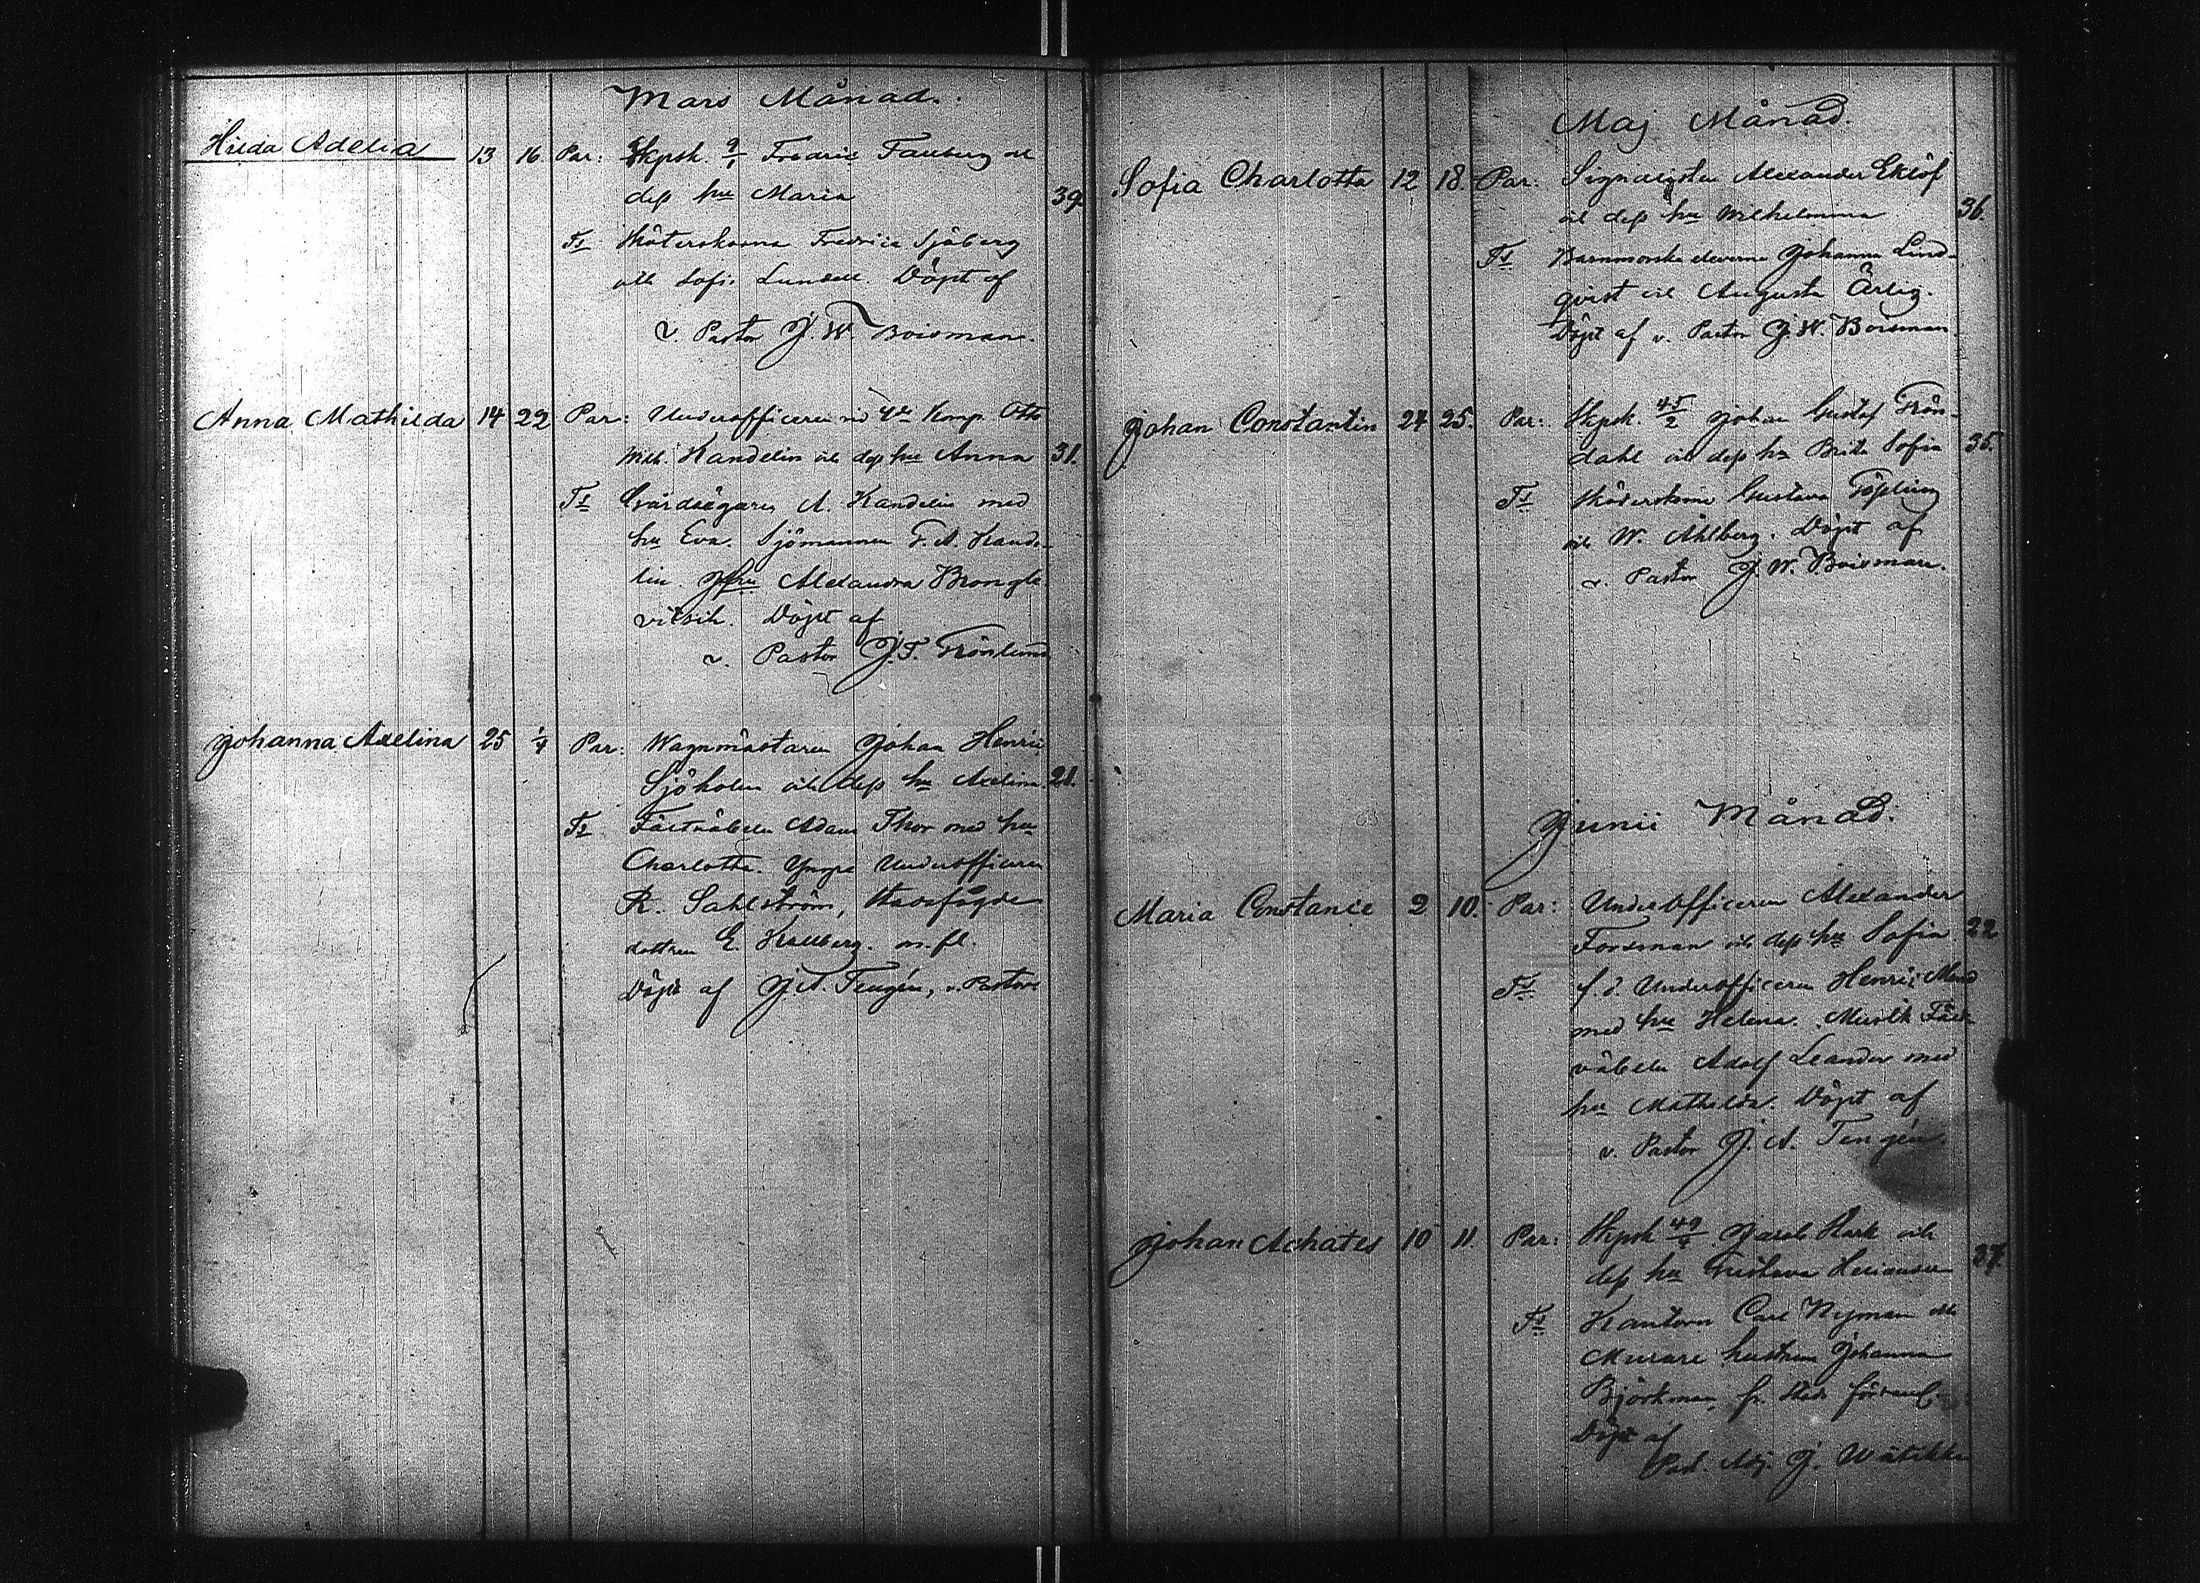 Mars Månad.
Hilda Adelia 13 16 Par: Skpsk. 9/1 Fredric Fallberg och
dess hu Maria 39.
Ts Sköterskorna Fredrica Sjöberg
och Sofia Lundell. Döpt af
v. Pastor J. W. Boisman.
Anna Mathilda 14 22 Par: Underofficeren vid 4de Komp. Otto
Wilh. Kandelin och dess hu Anna 31.
Ts Gårdsägaren A. Kandelin med
hu Eva. Sjömannen F. A. Kande-
lin. Jfru Alexandra
Döpt af
v. Pastor J. F. Grönlund
Johanna Axelina 25 1/4 Par: Wagnmästaren Johan Henric
Sjöholm och dess hu Axelina 21.
Ts Fältväbeln Adam Thor med hu
Charlotta. Yngre Underofficeren
R. Sahlström,
dottren E. Kullberg. m. fl.
Döpt af J. A. Tengén, v. Pastor.
Maj Månad.
Sofia Charlotta 12 18. Par: Signalisten Alexander Eklöf
och dess hu Wilhelmina 36.
Ts Barnmorske eleverna Johanna Lind-
qvist och Augusta Ärlig.
Döpt af v. Pastor J. W. Boisman
Johan Constantin 24 25. Par: Skpsk. 45/2 Johan Gustaf Grön-
dahl och dess hu Brita Sofia 35.
Ts Sköterskorna Gustava
och W. Åhlberg. Döpt af
v. Pastor J. W. Boisman.
Junii Månad.
Maria Constance 2 10. Par: Underofficeren Alexander
Forsman och dess hu Sofia 22
Ts f. d. Underofficeren Henric
med hu Helena. Musik Fält-
väbeln Adolf Leander med
hu Mathilda. Döpt af
v. Pastor J. A. Tengén.
Johan Achates 10 11. Par: Skpsk Jacob Stark och
dess hu Gustava 37.
Ts Kantorn Carl Nyman och
Murare hustrun Johanna
Björkman, fr.
Döpt af
Past. Adj. J.